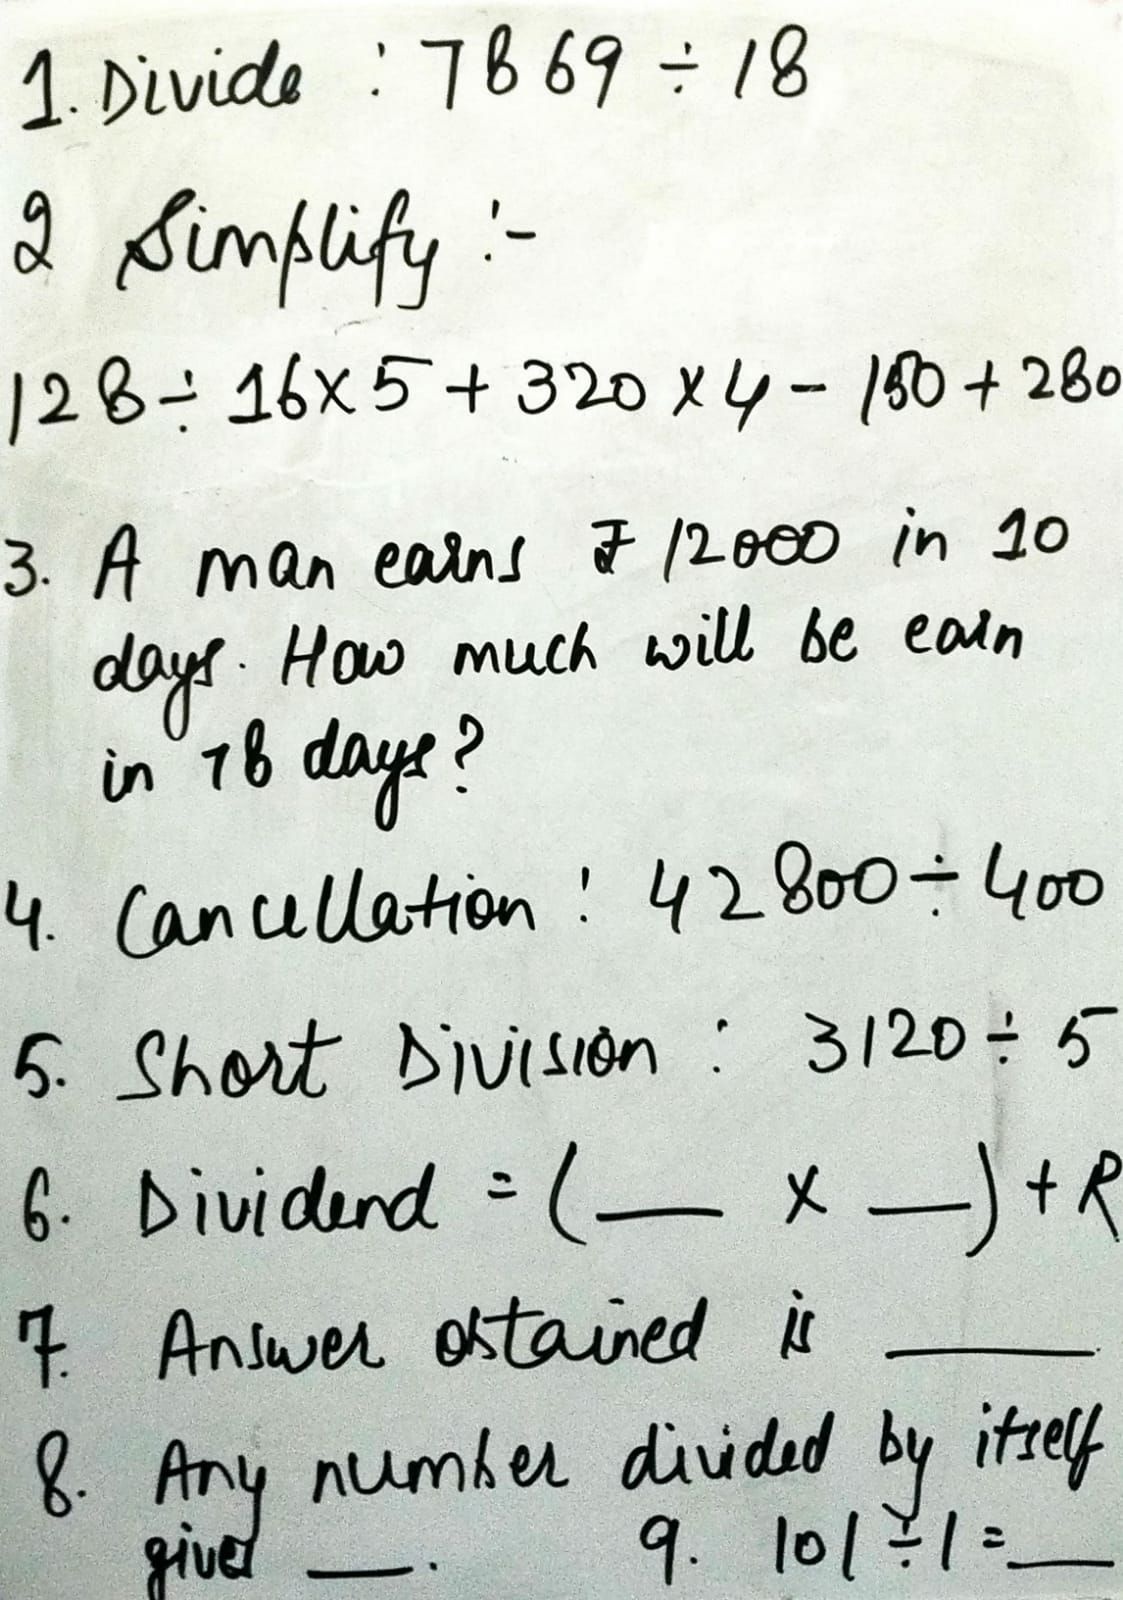 1. Divide : 7869 ÷ 18
2 Simplify :-
128 ÷ 16 x 5 + 320 x 4 - 150 + 280
3. A man earns ₹ 12000 in 10
days. How much will be earn
in 18 days?
4. Cancellation : 42800 ÷ 400
5. Short Division : 3120 ÷ 5
6. Dividend = ( __ x __ ) + R
7. Answer obtained is ____
8. Any number divided by itself
gives __. 9. 101 ÷ 1 = __